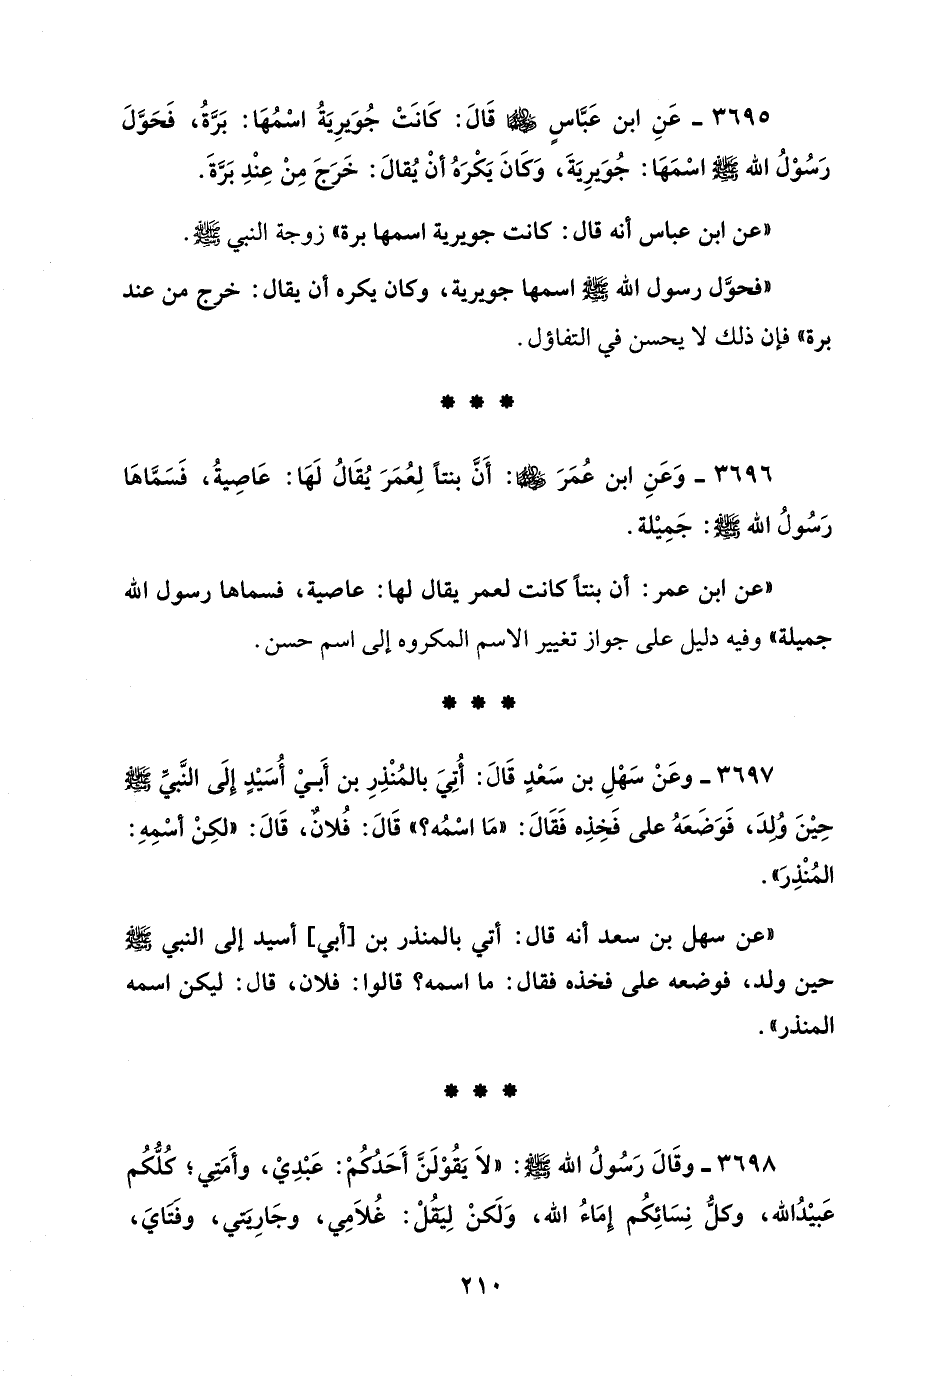 ٣٦٩٥ ـ عَنِ ابن عَبَّاسٍ ﵄ قَالَ: كَانَتْ جُوَيرِيَةُ اسْمُهَا: بَرَّةُ، فَحَوَّلَ
رَسُوْلُ الله ﷺ اسْمَهَا: جُوَيرِيَةَ، وَكَانَ يَكْرَهُ أنْ يُقالَ: خَرَجَ مِنْ عِنْدِ بَرَّةَ.
«عن ابن عباس أنه قال: كانت جويرية اسمها برة» زوجة النبي ﷺ.
«فحوَّل رسول الله ﷺ اسمها جويرية، وكان يكره أن يقال: خرج من عند
برة» فإن ذلك لا يحسن في التفاؤل.
* * *
٣٦٩٦ ـ وَعَنِ ابن عُمَرَ ﵄: أَنَّ بنتاً لِعُمَرَ يُقَالُ لَهَا: عَاصِيةُ، فَسَمَّاهَا
رَسُولُ الله ﷺ: جَمِيْلة.
«عن ابن عمر: أن بنتاً كانت لعمر يقال لها: عاصية، فسماها رسول الله
جميلة» وفيه دليل على جواز تغيير الاسم المكروه إلى اسم حسن.
* * *
٣٦٩٧ ـ وعَنْ سَهْلِ بن سَعْدٍ قَالَ: أُتِيَ بالمُنْذِرِ بن أَبيْ أُسَيْدٍ إِلَى النَّبيِّ ﷺ
حِيْنَ وُلِدَ، فَوَضَعَهُ على فَخِذِه فَقَالَ: «مَا اسْمُه؟» قَالَ: فُلانٌ، قَالَ: «لكِنْ أسْمِهِ:
المُنْذِرَ».
«عن سهل بن سعد أنه قال: أتي بالمنذر بن [أبي] أسيد إلى النبي ﷺ
حين ولد، فوضعه على فخذه فقال: ما اسمه؟ قالوا: فلان، قال: ليكن اسمه
المنذر».
* * *
٣٦٩٨ ـ وقَالَ رَسُولُ الله ﷺ: «لاَ يَقُوْلَنَّ أَحَدُكُمْ: عَبْدِيْ، وأَمَتِي؛ كُلُّكُم
عَبيْدُالله، وكلُّ نِسَائِكُم إِمَاءُ الله، وَلَكنْ لِيَقُلْ: غُلاَمِي، وجَارِيَتي، وفَتَايَ،
٢١٠